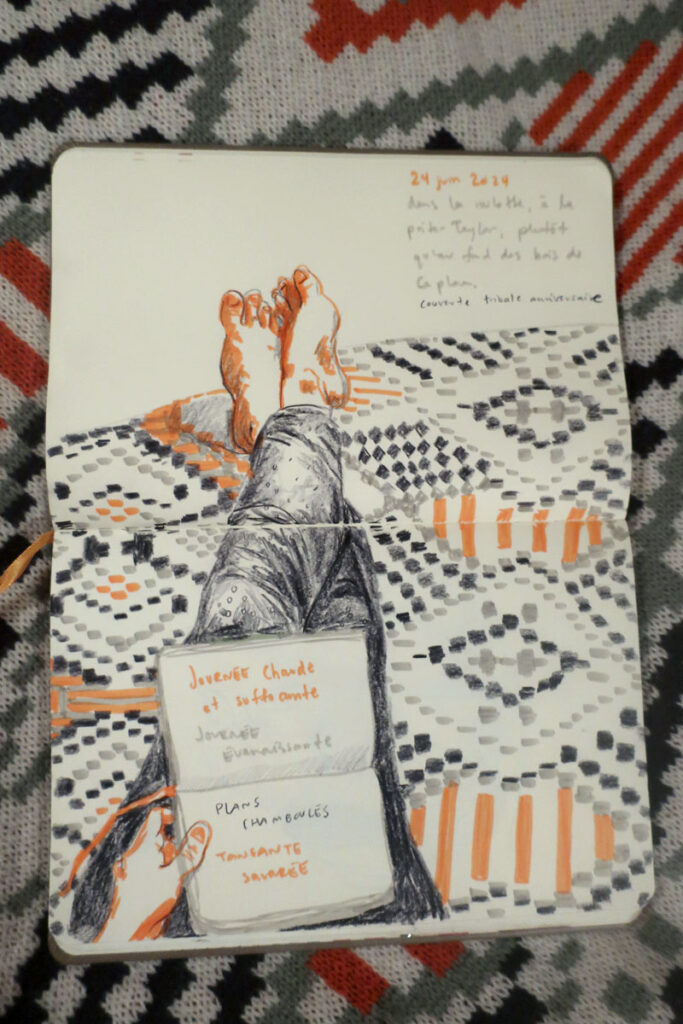 24 juin 2024
dans la roulotte, à la
prêter Taylor, plutôt
qu'au fond des bois de
Caplan.
couverte tribale anniversaire
JOURNÉE Chaude
et suffocante
JOURNÉE
ÉVANAISSANTE
PLANS
CHAMBOULÉS
TANGANTE
SOIRÉE